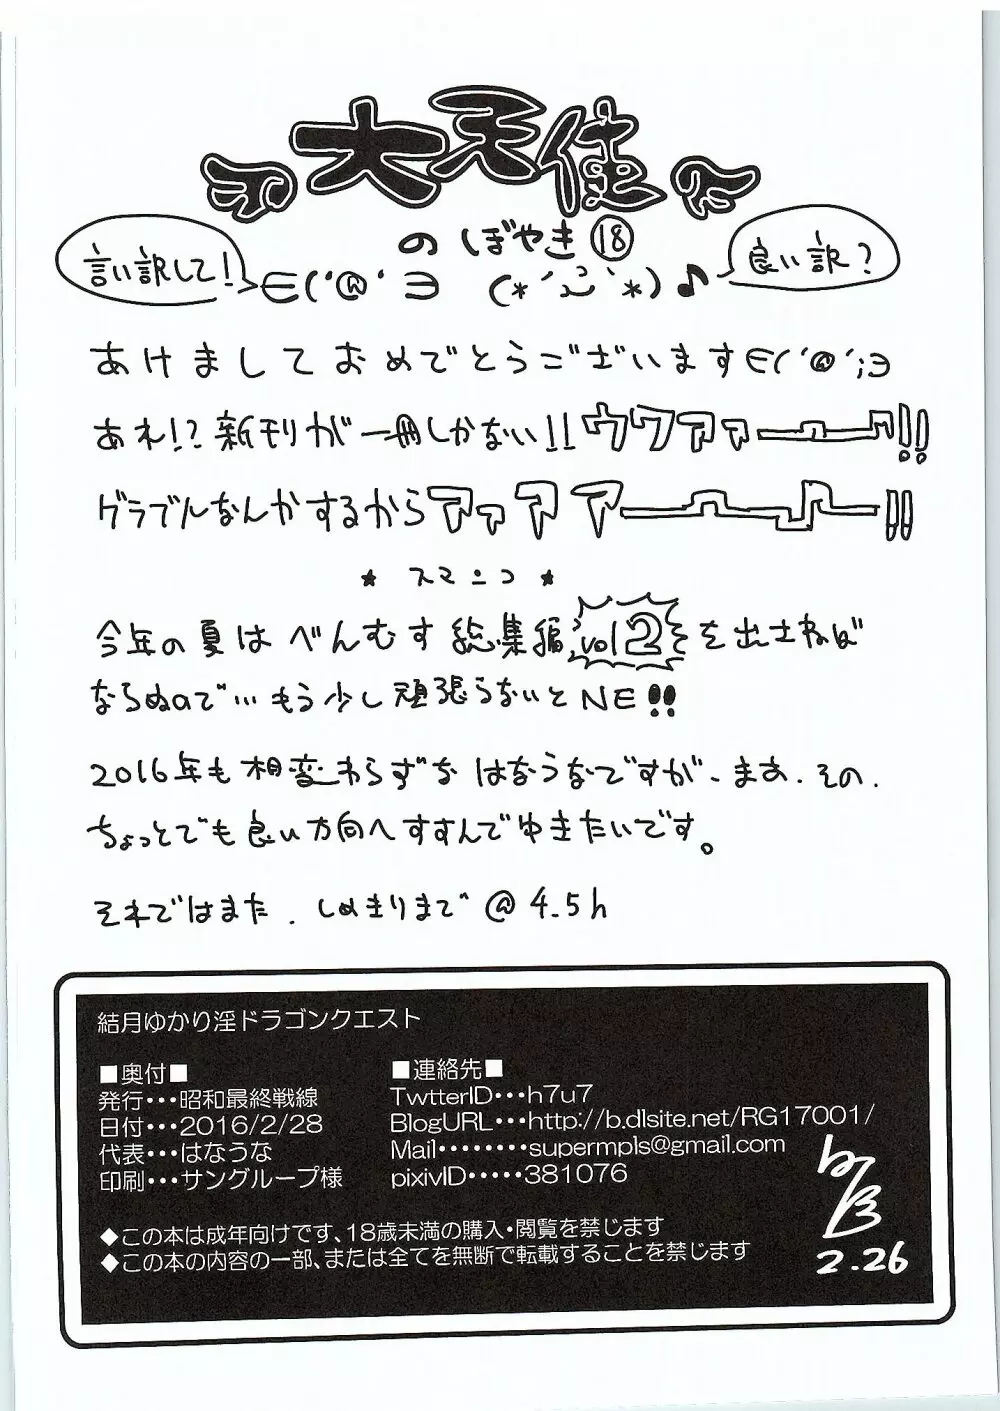 大天使
のぼやき⑱
言い訳して!
∈('@'∋ (*´ω`*)♪
良い訳?
あけましておめでとうございます∈('@';∋
あれ!?新刊が一冊しかない!!ウワアァーーー!!
グラブルなんかするからアァアアーーー!!
★ スマンコ ★
今年の夏はべんむす総集編vol2を出さねば
ならぬので…もう少し頑張らないとNE!!
2016年も相変わらずなはなうなですが、まあ、その、
ちょっとでも良い方向へすすんでゆきたいです。
それではまた、しめきりまで@4.5h
結月ゆかり淫ドラゴンクエスト
■奥付■
発行・・・昭和最終戦線
日付・・・2016/2/28
代表・・・はなうな
印刷・・・サングループ様
■連絡先■
TwtterID・・・h7u7
BlogURL・・・http://b.dlsite.net/RG17001/
Mail・・・・・・・・supermpls@gmail.com
pixivID・・・・・381076
◆この本は成年向けです、18歳未満の購入・閲覧を禁じます
◆この本の内容の一部、または全てを無断で転載することを禁じます
2.26